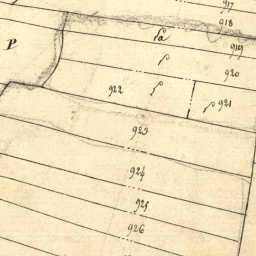 917
918
fa
919
P
920
922
921
923
924
925
926